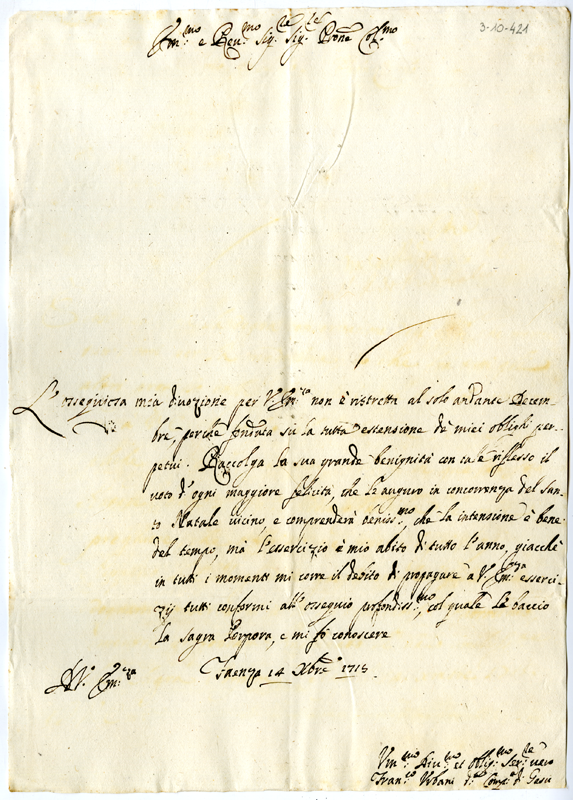 3-10-421
Em.mo e Reu.mo Sig.re Sig.re Prone Col.mo
L'ossequiosa mia diuozione per V. Em.za non è ristretta al solo andante Decem-
bre, perche fondata sù la tutta essensione de miei oblighi per-
petui. Raccolga la sua grande benignità con tale riflesso il
uoto d'ogni maggiore felicità, che le auguro in concorrenza del San-
to Natale uicino, e comprenderà beniss.mo, che la intensione è bene
del tempo, mà l'essercizio è mio abito di tutto l'anno, giacchè
in tutti i momenti mi corre il debito di propagare a V. Em.za esserci-
zij tutti conformi all'ossequio profondiss.mo, col quale Le baccio
la sagra Porpora, e mi fò conoscere
Faenza 14 Xbre 1715.
A V. Em.za
Um.mo Diu.mo et Oblig.mo Ser.re uero
Fran.co Urbani d.a Comp.a di Gesu